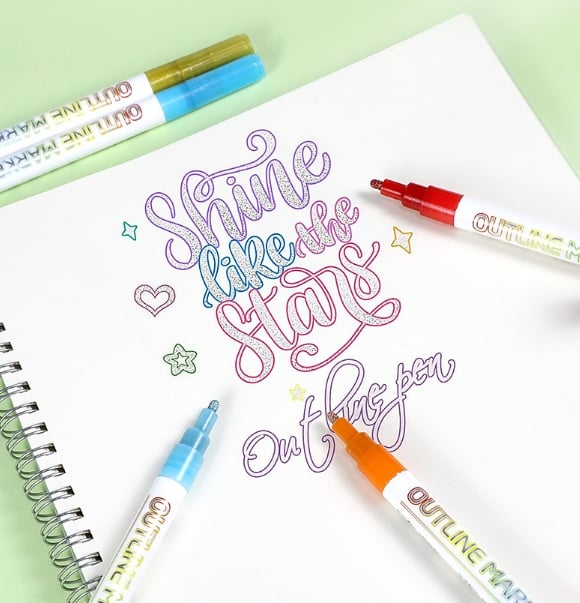 OUTLINE MARK
OUTLINE MARKE
Shine
like the
Stars
OUTLINE
Outline pen
OUTLINE MAR
OUTLINE MARKE